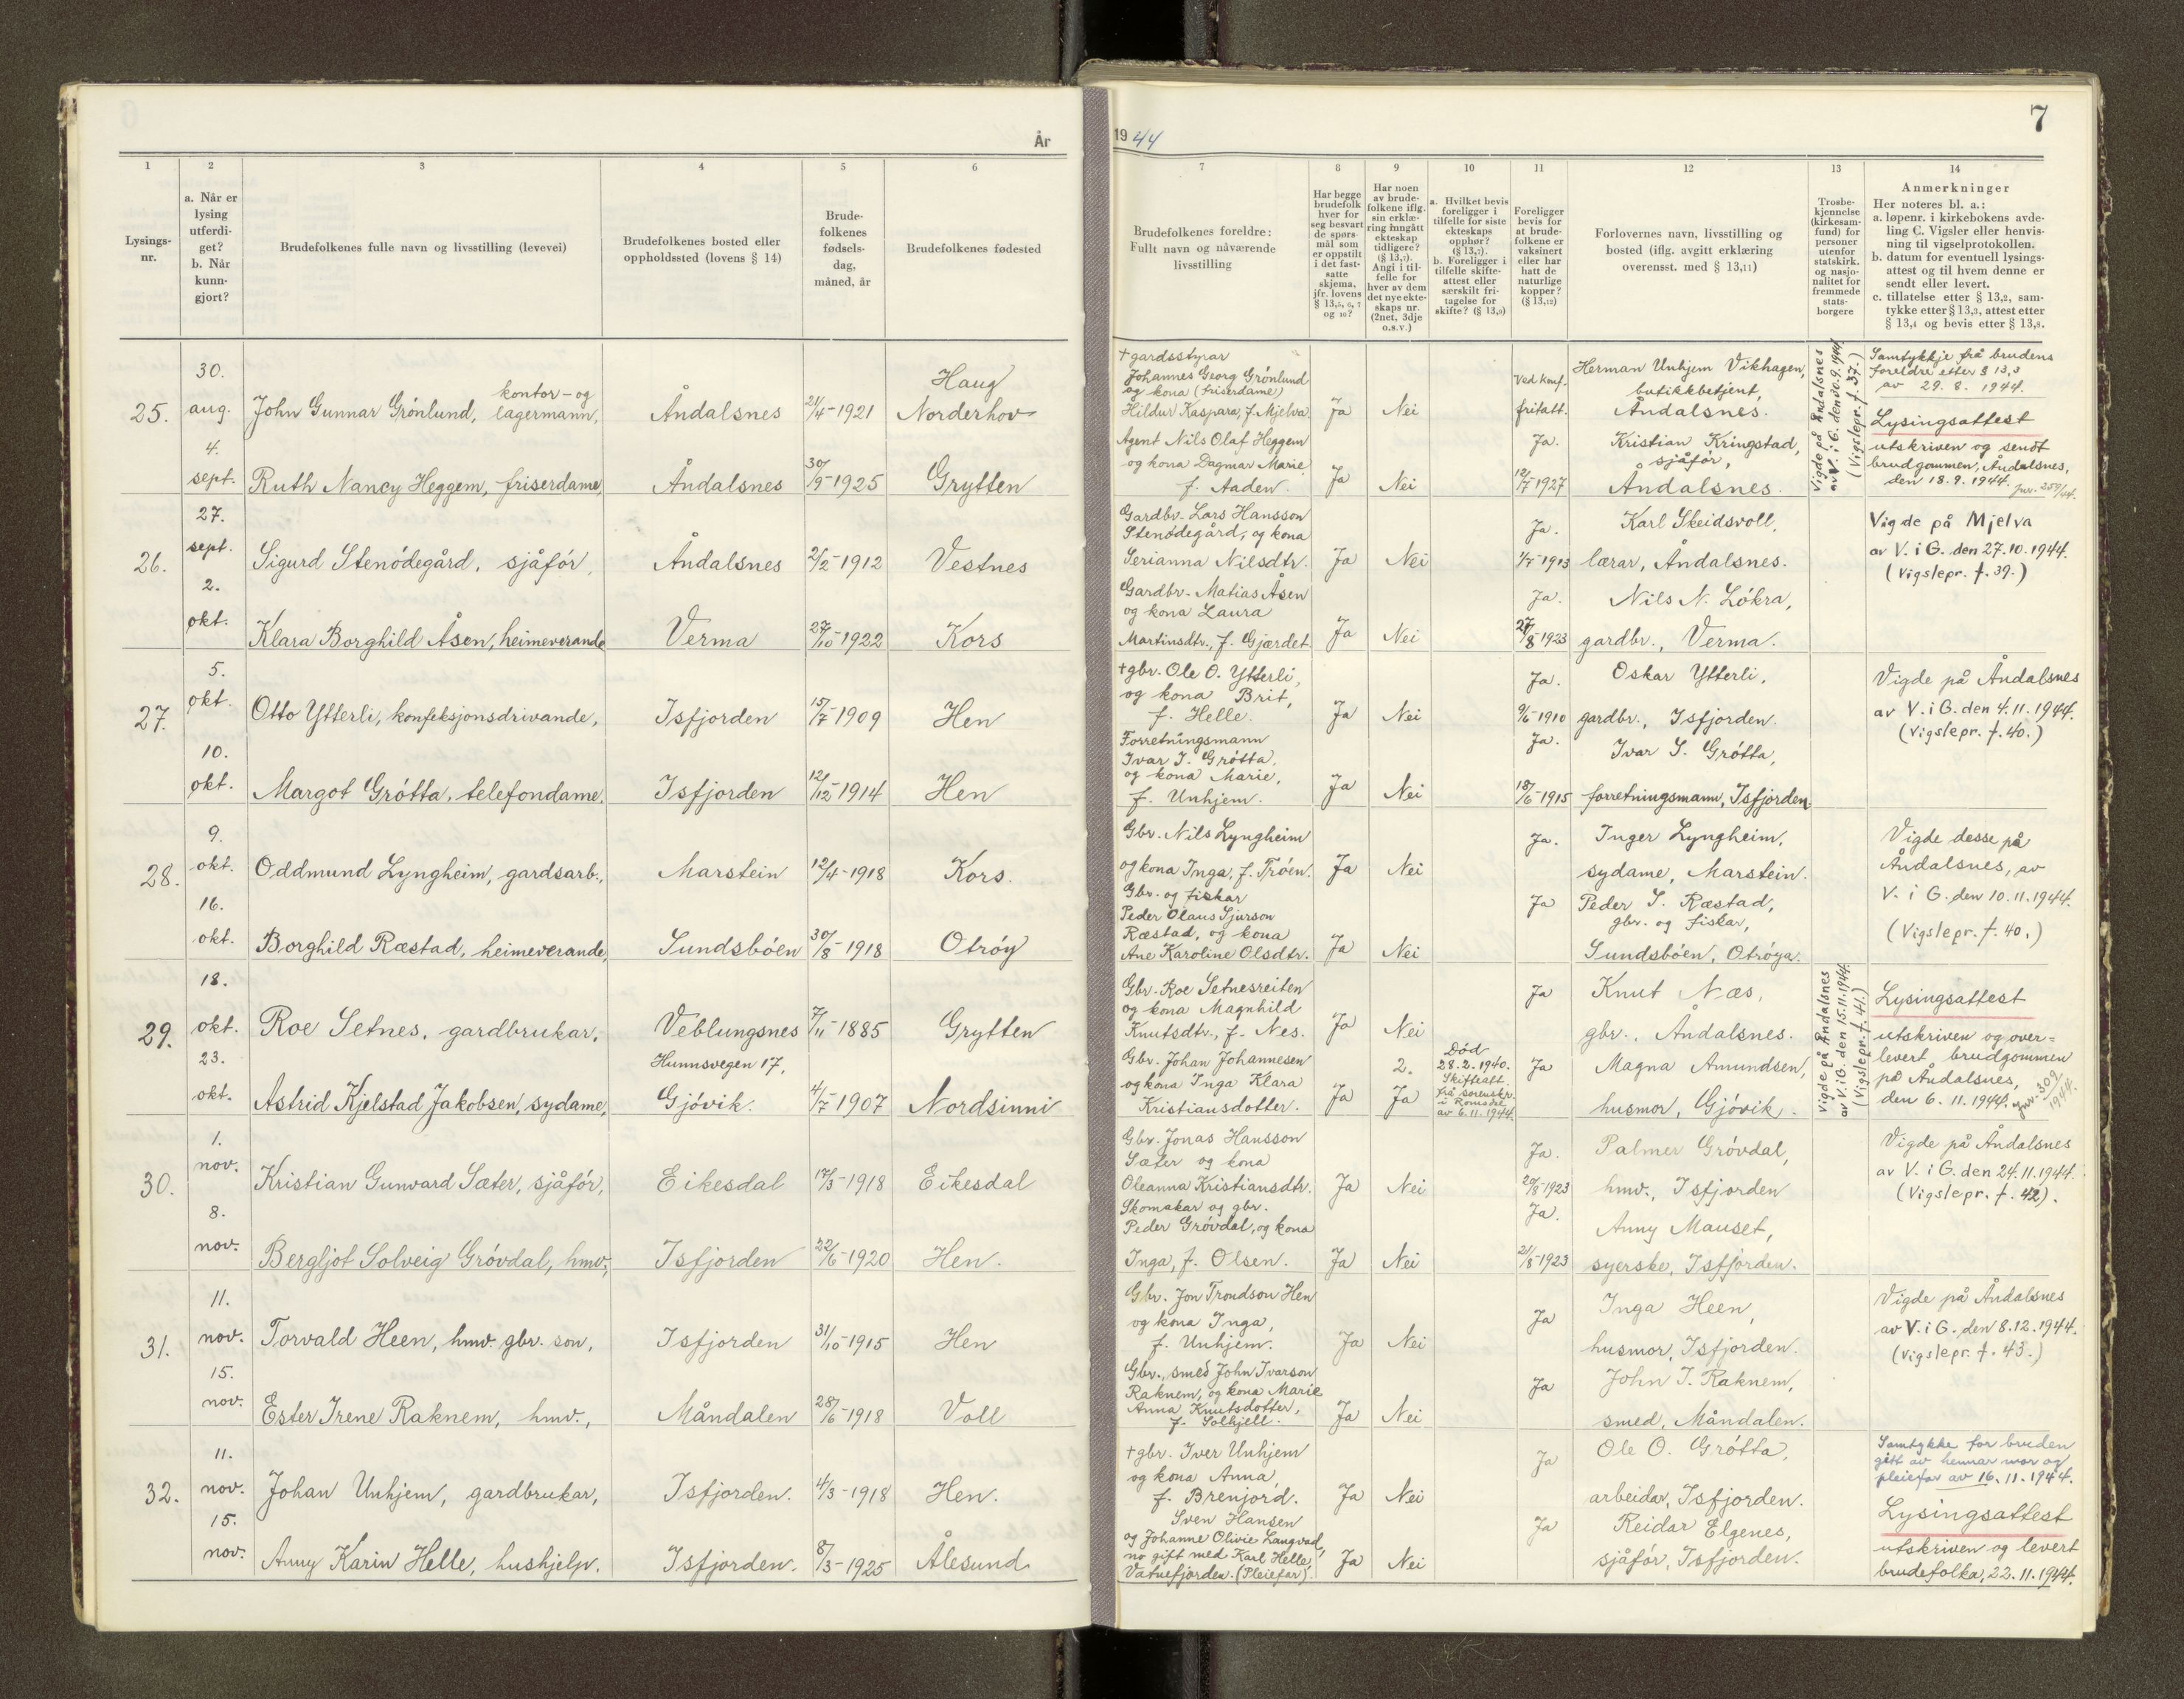 År
1944
7
1
2
3
4
5
6
7
8
9
10
11
12
13
14
Lysings-
nr.
a. Når er
lysing
utferdi-
get?
b. Når
kunn-
gjort?
Brudefolkenes fulle navn og livsstilling (levevei)
Brudefolkenes bosted eller
oppholdssted (lovens § 14)
Brude-
folkenes
fødsels-
dag,
måned, år
Brudefolkenes fødested
Brudefolkenes foreldre:
Fullt navn og nåværende
livsstilling
Har begge
brudefolk
hver for
seg besvart
de spørs-
mål som
er oppstilt
i det fast-
satte
skjema,
jfr. lovens
§ 13,5, 6, 7
og 10?
Har noen
av brude-
folkene iflg.
sin erklæ-
ring inngått
ekteskap
tidligere?
(§ 13,7).
Angi i til-
felle for
hver av dem
det nye ekte-
skaps nr.
(2net, 3dje
o.s.v.)
a. Hvilket bevis
foreligger i
tilfelle for siste
ekteskaps
opphør?
(§ 13,7).
b. Foreligger i
tilfelle skifte-
attest eller
særskilt fri-
tagelse for
skifte? (§ 13,9)
Foreligger
bevis for
at brude-
folkene er
vaksinert
eller har
hatt de
naturlige
kopper?
(§ 13,12)
Forlovernes navn, livsstilling og
bosted (iflg. avgitt erklæring
overensst. med § 13,11)
Trosbe-
kjennelse
(kirkesam-
fund) for
personer
utenfor
statskirk.
og nasjo-
nalitet for
fremmede
stats-
borgere
Anmerkninger
Her noteres bl. a.:
a. løpenr. i kirkebokens avde-
ling C. Vigsler eller henvis-
ning til vigselprotokollen.
b. datum for eventuell lysings-
attest og til hvem denne er
sendt eller levert.
c. tillatelse etter § 13,2, sam-
tykke etter § 13,3, attest etter
§ 13,4 og bevis etter § 13,8.
25.
30.
aug.
4.
sept.
John Gunnar Grönlund, kontor- og
lagermann,
Åndalsnes
21/4-1921
Haug
Norderhov
+ gardsstyrar
Johannes Georg Grönlund
og kona (friserdame)
Hildur Kaspara, f. Mjelva
Ja
Nei
Ved konf.
fritatt.
Herman Unhjem Vikhagen,
butikkbetjent,
Åndalsnes.
Vigde på Åndalsnes
av V. i G. den 30.9.1944
(Vigslepr. f. 37.)
Samtykkje frå brudens
foreldre etter § 13,3
av 29. 8. 1944.
Lysingsattest
utskriven og sendt
brudgommen, Åndalsnes,
den 18.9. 1944. Jnr. 259/44.
Ruth Nancy Heggem, friserdame,
Åndalsnes
30/9-1925
Grytten
Agent Nils Olaf Heggem
og kona Dagmar Marie
f. Aaden.
Ja
Nei
Ja.
12/7 1927
Kristian Kringstad,
sjåför,
Åndalsnes.
26.
27.
sept.
2.
okt.
Sigurd Stenödegård, sjåför,
Åndalsnes
2/2-1912
Vestnes
Gardbr. Lars Hansson
Stenödegård, og kona
Serianna Nilsdtr.
Ja
Nei
Ja.
Karl Skeidsvoll,
lærar, Åndalsnes.
Vigde på Mjelva
av V. i G. den 27.10.1944.
(Vigslepr. f. 39.)
Klara Borghild Åsen, heimeverande
Verma
27/10-1922
Kors
Gardbr. Matias Åsen
og kona Laura
Martinsdtr., f. Gjærdet
Ja
Nei
Ja.
27/8-1923
Nils N. Lökra,
gardbr., Verma.
27.
5.
okt.
10.
okt.
Otto Ytterli, konfeksjonsdrivande,
Isfjorden
15/7-1909
Hen
+ gbr. Ole O. Ytterli,
og kona Brit,
f. Helle.
Ja
Nei
Ja.
9/6-1910
Oskar Ytterli,
gardbr., Isfjorden.
Vigde på Åndalsnes
av V. i G. den 4.11.1944.
(Vigslepr. f. 40.)
Margot Grötta, telefondame,
Isfjorden
12/12-1914
Hen
Forretningsmann
Ivar J. Grötta,
og kona Marie,
f. Unhjem.
Ja
Nei
Ja.
18/6-1915
Ivar J. Grötta,
forretningsmann, Isfjorden
28.
9.
okt.
16.
okt.
Oddmund Lyngheim, gardsarb.,
Marstein
12/4-1918
Kors.
Gbr. Nils Lyngheim
og kona Inga, f. Tröen.
Ja
Nei
Ja.
Inger Lyngheim,
sydame, Marstein.
Vigde desse på
Åndalsnes, av
V. i G. den 10.11.1944.
(Vigslepr. f. 40.)
Borghild Ræstad, heimeverande,
Sundsböen
30/8-1918
Otröy
Gbr. og fiskar
Peder Olaus Sjurson
Ræstad, og kona
Ane Karoline Olsdtr.
Ja
Nei
Ja
Peder S. Ræstad,
gbr. og fiskar,
Sundsböen, Otröya.
29.
18.
okt.
23.
okt.
Roe Setnes, gardbrukar,
Veblungsnes
7/11-1885
Grytten
Gbr. Roe Setnesreiten
og kona Magnhild
Knutsdtr., f. Nes.
Ja
Nei
Ja
Knut Næs,
gbr., Åndalsnes.
Vigde på Åndalsnes
av V. i G. den 15.11.1944.
(Vigslepr. f. 41.)
Lysingsattest
utskriven og over=
levert brudgommen
på Åndalsnes,
den 6. 11. 1944. Jnr. 309
1944.
Astrid Kjelstad Jakobsen, sydame,
Hunnsvegen 17,
Gjövik.
4/7-1907
Nordsinni
Gbr. Johan Johannesen
og kona Inga Klara
Kristiansdotter.
Ja
2.
Ja
Död
28.2.1940.
Skifteatt.
frå sorenskr.
i Romsdal
av 6.11.1944.
Ja
Magna Amundsen,
husmor, Gjövik.
30.
1.
nov.
8.
nov.
Kristian Gunvard Sæter, sjåför,
Eikesdal
17/3-1918
Eikesdal
Gbr. Jonas Hansson
Sæter og kona
Oleanna Kristiansdtr.
Ja
Nei
Ja.
20/8-1923
Palmer Grövdal,
hmv., Isfjorden
Vigde på Åndalsnes
av V. i G. den 24.11.1944.
(Vigslepr. f. 42).
Bergljot Solveig Grövdal, hmv.,
Isfjorden
22/6-1920
Hen.
Skomakar og gbr.
Peder Grövdal, og kona
Inga, f. Olsen.
Ja
Nei
Ja.
21/8-1923
Anny Mauset,
syerske, Isfjorden.
31.
11.
nov.
15.
nov.
Torvald Heen, hmv. gbr. son,
Isfjorden
31/10-1915
Hen
Gbr. Jon Trondson Hen
og kona Inga,
f. Unhjem.
Ja
Nei
Ja
Inga Heen,
husmor, Isfjorden.
Vigde på Åndalsnes
av V. i G. den 8.12.1944.
(Vigslepr. f. 43.)
Ester Irene Raknem, hmv.,
Måndalen
28/6-1918
Voll
Gbr., smed John Ivarson
Raknem, og kona Marie
Anna Knutsdotter,
f. Solhjell.
Ja
Nei
Ja
John I. Raknem,
smed, Måndalen.
32.
11.
nov.
15.
nov.
Johan Unhjem, gardbrukar,
Isfjorden.
4/3-1918
Hen.
+ gbr. Iver Unhjem
og kona Anna,
f. Brenjord.
Ja
Nei
Ja
Ole O. Grötta,
arbeidar, Isfjorden.
Samtykke for bruden
gitt av hennar mor og
pleiefar av 16.11.1944.
Lysingsattest
utskriven og levert
brudefolka, 22.11.1944.
Anny Karin Helle, hushjelp.
Isfjorden.
8/3-1925
Ålesund
Sven Hansen
og Johanne Olivie Langvad,
no gift med Karl Helle,
Vatnefjorden. (Pleiefar).
Ja
Nei
Ja
Reidar Elgenes,
sjåför, Isfjorden.